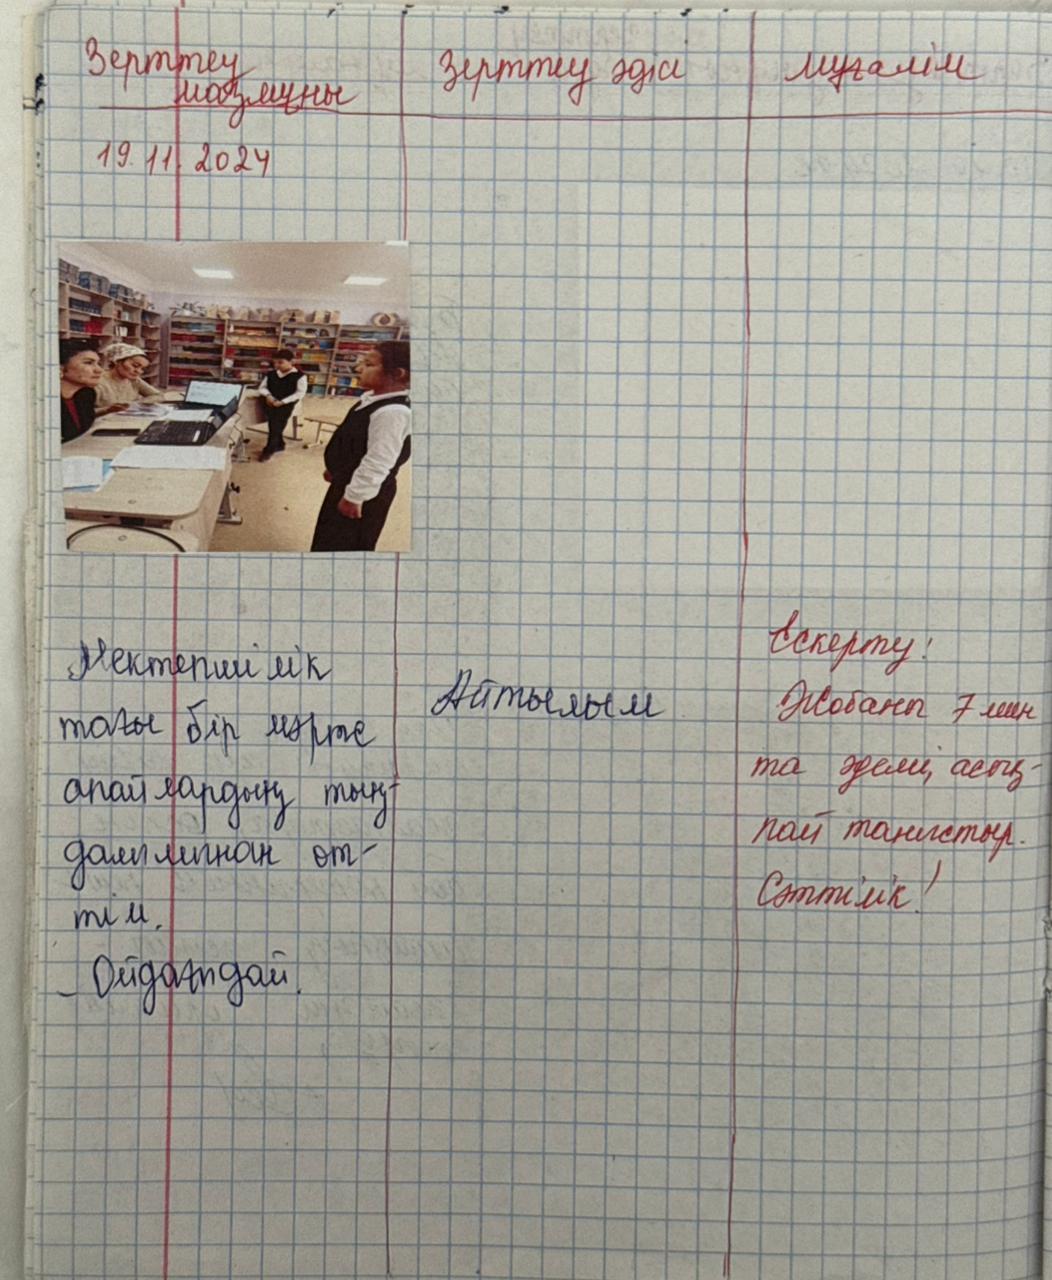 Зерттеу
мазмұны
Зерттеу әдісі
мұғалім
19.11.2024
Мектепшілік
тағы бір мәрте
апайлардың тың-
далымынан өт-
тім.
Ойдағыдай.
Айтылым
Ескерту!
Жобаны 7 мин
та әдемі, асық-
пай таныстыр.
Сәттілік!